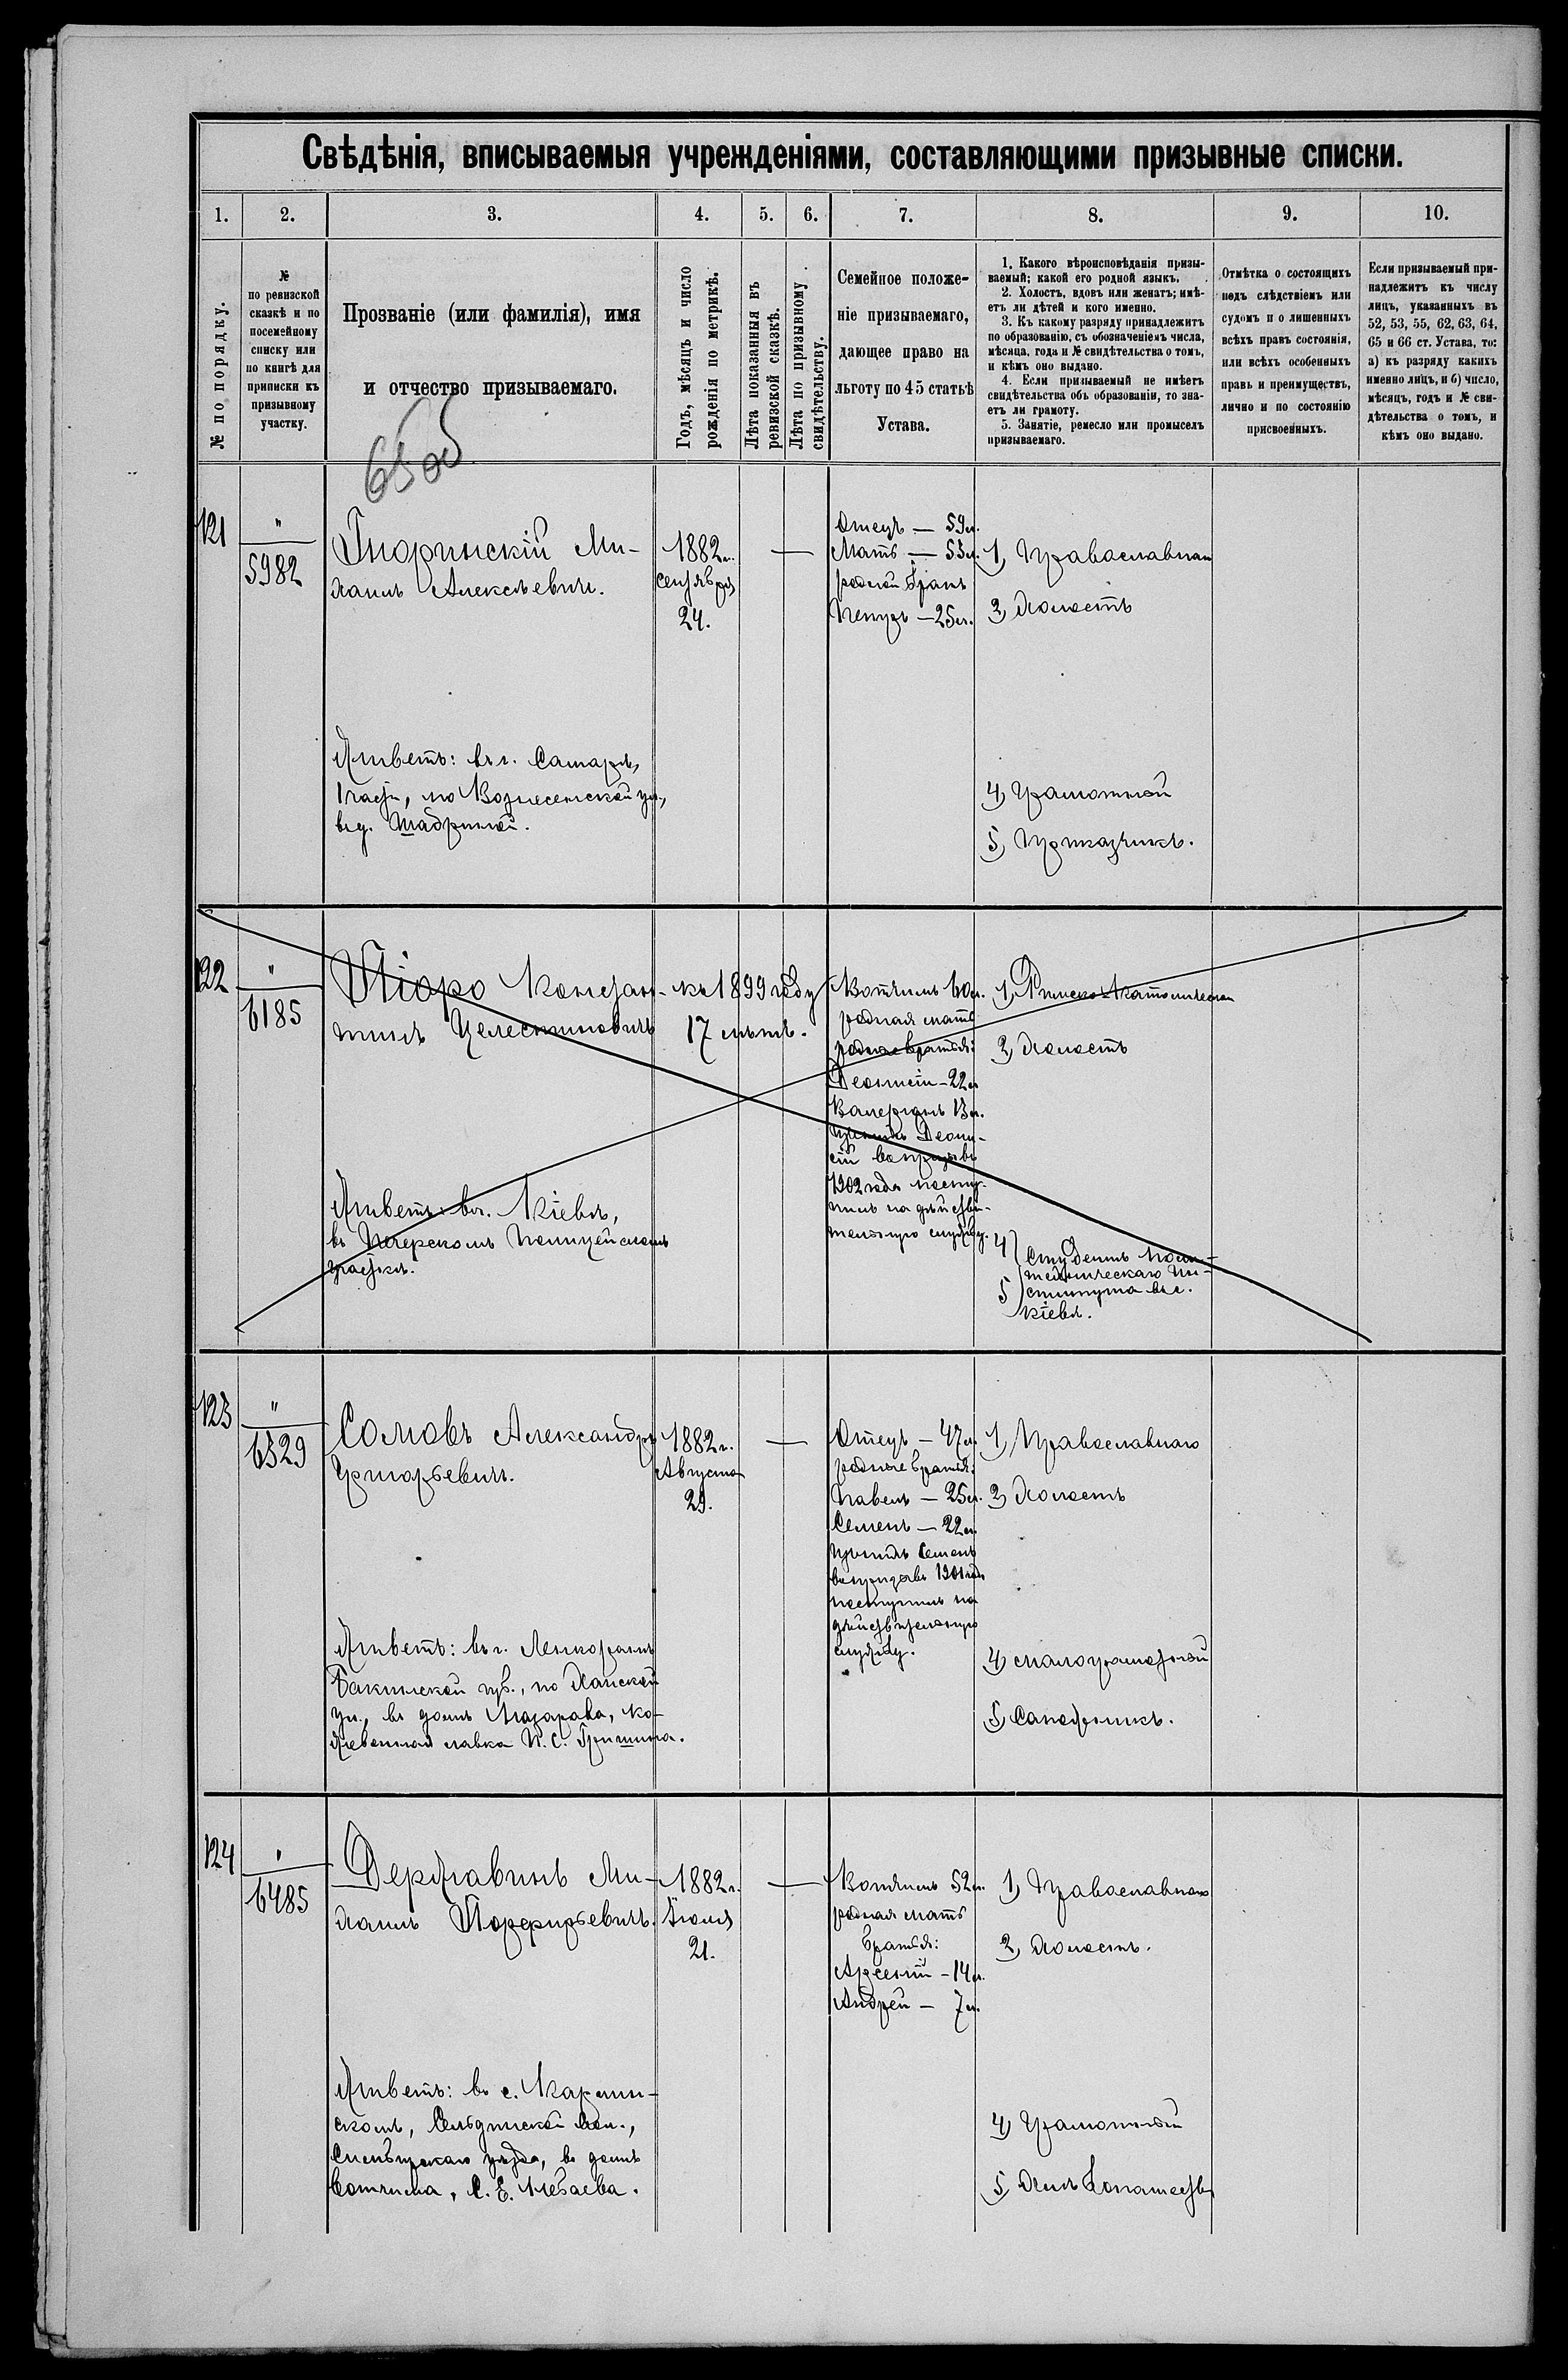 Свѣдѣнія, вписываемыя учрежденіями, составляющими призывные списки.
1. 2. 3. 4. 5. 6. 7. 8. 9. 10.
№ по порядку.
№
по ревизской
сказкѣ и по
посемейному
списку или
по книгѣ для
приписки къ
призывному
участку.
Прозваніе (или фамилія), имя
и отчество призываемаго.
Годъ, мѣсяцъ и число
рожденія по метрикѣ.
Лѣта показанныя въ
ревизской сказкѣ.
Лѣта по призывному
свидѣтельству.
Семейное положе-
ніе призываемаго,
дающее право на
льготу по 45 статьѣ
Устава.
1. Какого вѣроисповѣданія призы-
ваемый; какой его родной языкъ.
2. Холостъ, вдовъ или женатъ; имѣ-
етъ ли дѣтей и кого именно.
3. Къ какому разряду принадлежитъ
по образованію, съ обозначеніемъ числа,
мѣсяца, года и № свидѣтельства о томъ,
и кѣмъ оно выдано.
4. Если призываемый не имѣетъ
свидѣтельства объ образованіи, то зна-
етъ ли грамоту.
5. Занятіе, ремесло или промыселъ
призываемаго.
Отмѣтка о состоящихъ
подъ слѣдствіемъ или
судомъ и о лишенныхъ
всѣхъ правъ состоянія,
или всѣхъ особенныхъ
правъ и преимуществъ,
лично и по состоянію
присвоенныхъ.
Если призываемый при-
надлежитъ къ числу
лицъ, указанныхъ въ
52, 53, 55, 62, 63, 64,
65 и 66 ст. Устава, то:
а) къ разряду какихъ
именно лицъ, и б) число,
мѣсяцъ, годъ и № сви-
дѣтельства о томъ, и
кѣмъ оно выдано.
121
"
5982
Ми-
хаилъ Алексѣевичъ.
Живетъ: въ г. Самарѣ,
1 части, по Вознесенской ул.,
въ д. Шадриной.
1882 г.
Сентября
24.
—
Отецъ — 59 л.
Мать — 53 л.
родной братъ
Петръ — 25 л.
1) Православнаго
2) Холостъ
4) Грамотный
5) Приказчикъ.
122
"
6185
Піоро Констан-
тинъ Целестиновичъ
Живетъ: въ г. Кіевѣ,
въ Печерскомъ Полицейскомъ
участкѣ.
къ 1899 году
17 лѣтъ.
Вотчимъ 60 л.
родная мать
родные братья:
Деонисій — 22 л.
Валеріанъ 13 л.
Деони-
сій въ призывъ
1902 года посту-
пилъ на дѣйстви-
тельную службу.
1) Римско-Католическаго
2) Холостъ
4)
5)
Студентъ Поли-
техническаго Ин-
ститута въ г.
Кіевѣ.
123
"
6329
Сомовъ Александръ
Григорьевичъ.
Живетъ: въ г. Ленкорани
Бакинской губ., по Ханской
ул., въ домѣ Лазарева, ко-
жевенная лавка П. С. Гришина.
1882 г.
Августа
29.
—
Отецъ — 47 л.
родные братья:
Павелъ — 25 л.
Семенъ — 22 л.
Семенъ
въ призывъ 1901 года
поступилъ на
дѣйствительную
службу.
1) Православнаго
2) Холостъ
4) малограмотный
5) Сапожникъ.
124
"
6485
Державинъ Ми-
хаилъ Порфирьевичъ.
Живетъ: въ с. Карлин-
скомъ, Сельдинской вол.,
Симбирскаго уѣзда, въ домѣ
вотчима, С. Е.
1882 г.
Іюля
21.
—
Вотчимъ 52 л.
родная мать
братья:
Арсеній — 14 л.
Андрей — 7 л.
1) Православнаго
2) Холостъ.
4) Грамотный
5) Хлѣбопашество